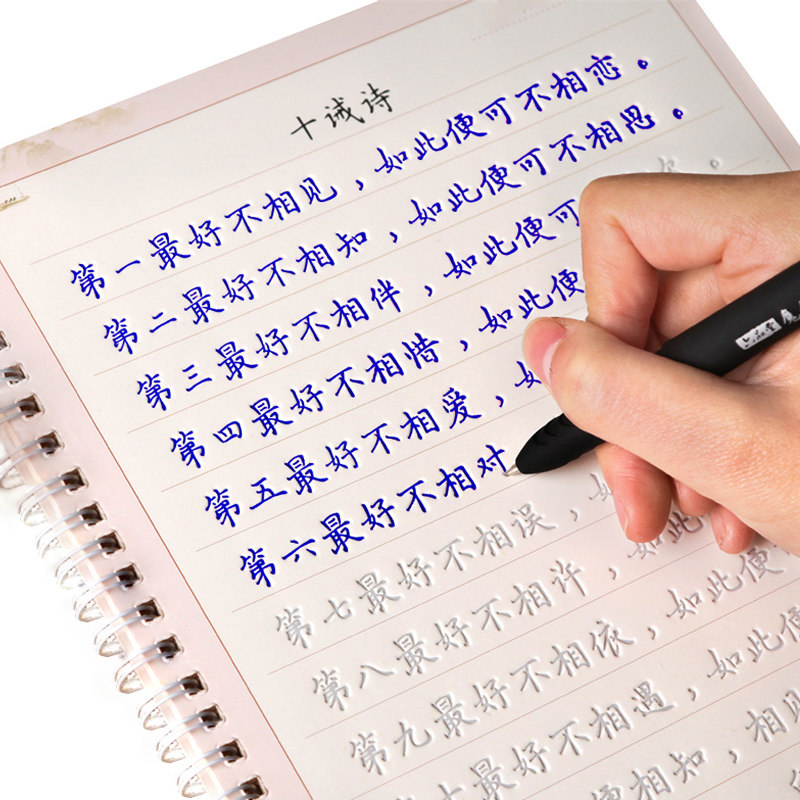 十诫诗
第一最好不相见，如此便可不相恋。
第二最好不相知，如此便可不相思。
第三最好不相伴，如此便可
第四最好不相惜，如此便
第五最好不相爱，如
第六最好不相对
第七最好不相误，如
第八最好不相许，如此便
第九最好不相依，如此便
十最好不相遇，如此便
便相知，相见
六品堂